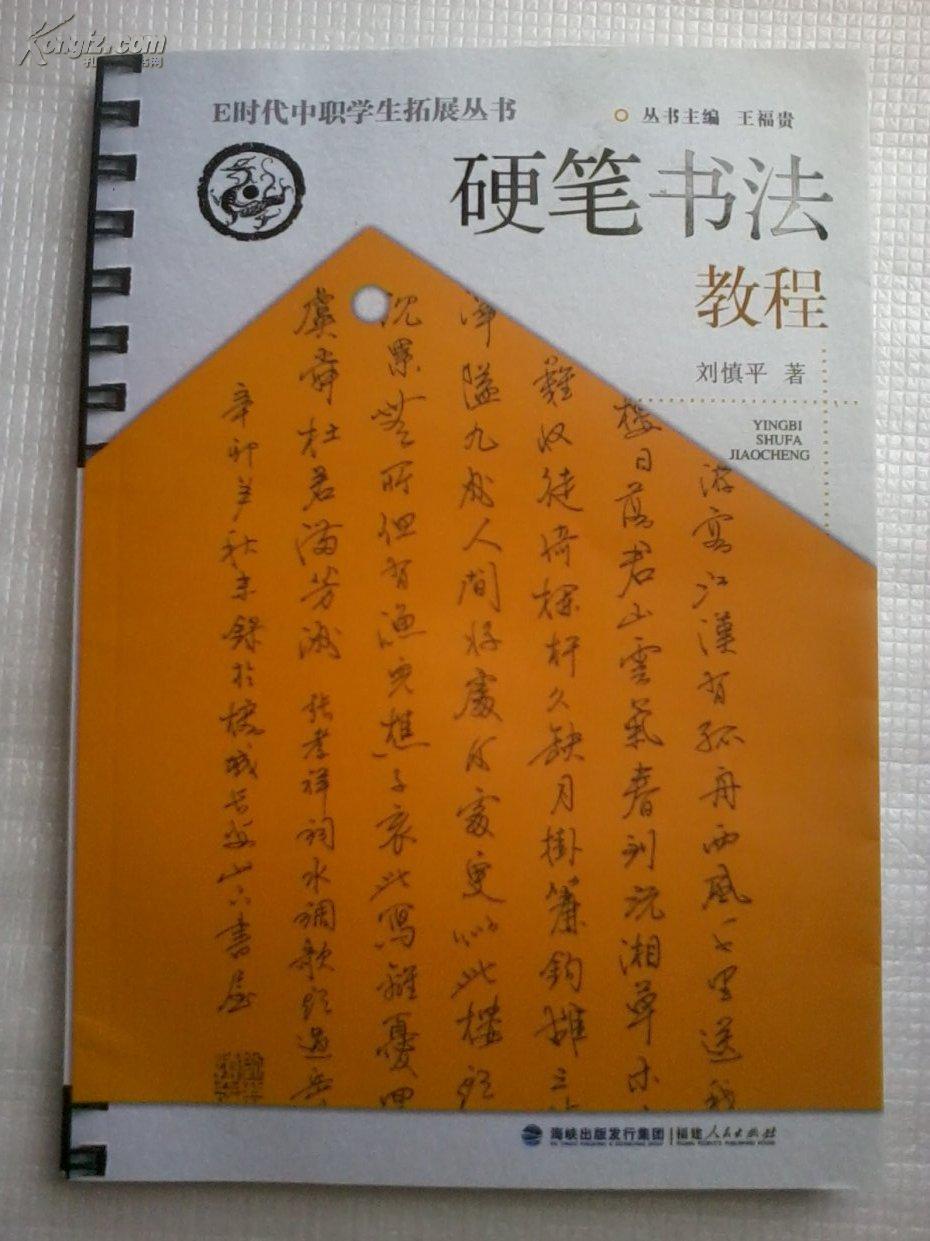 Kongfz.com
E时代中职学生拓展丛书
丛书主编 王福贵
硬笔书法
教程
刘慎平 著
YINGBI
SHUFA
JIAOCHENG
游客江漢有孤舟西風千里送我
樓日落君山雲氣春到沅湘草木
難收徒倚欄杆久缺月掛簾鈎雄三
泽隘九州人間好處何處更似此樓頭
沉累無所但有漁兒樵子哀此寫離憂回
虞舜杜若滿芳洲 張孝祥詞水調歌頭過岳
辛卯年秋末錄於榕城長安山書屋
海峡出版发行集团
福建人民出版社